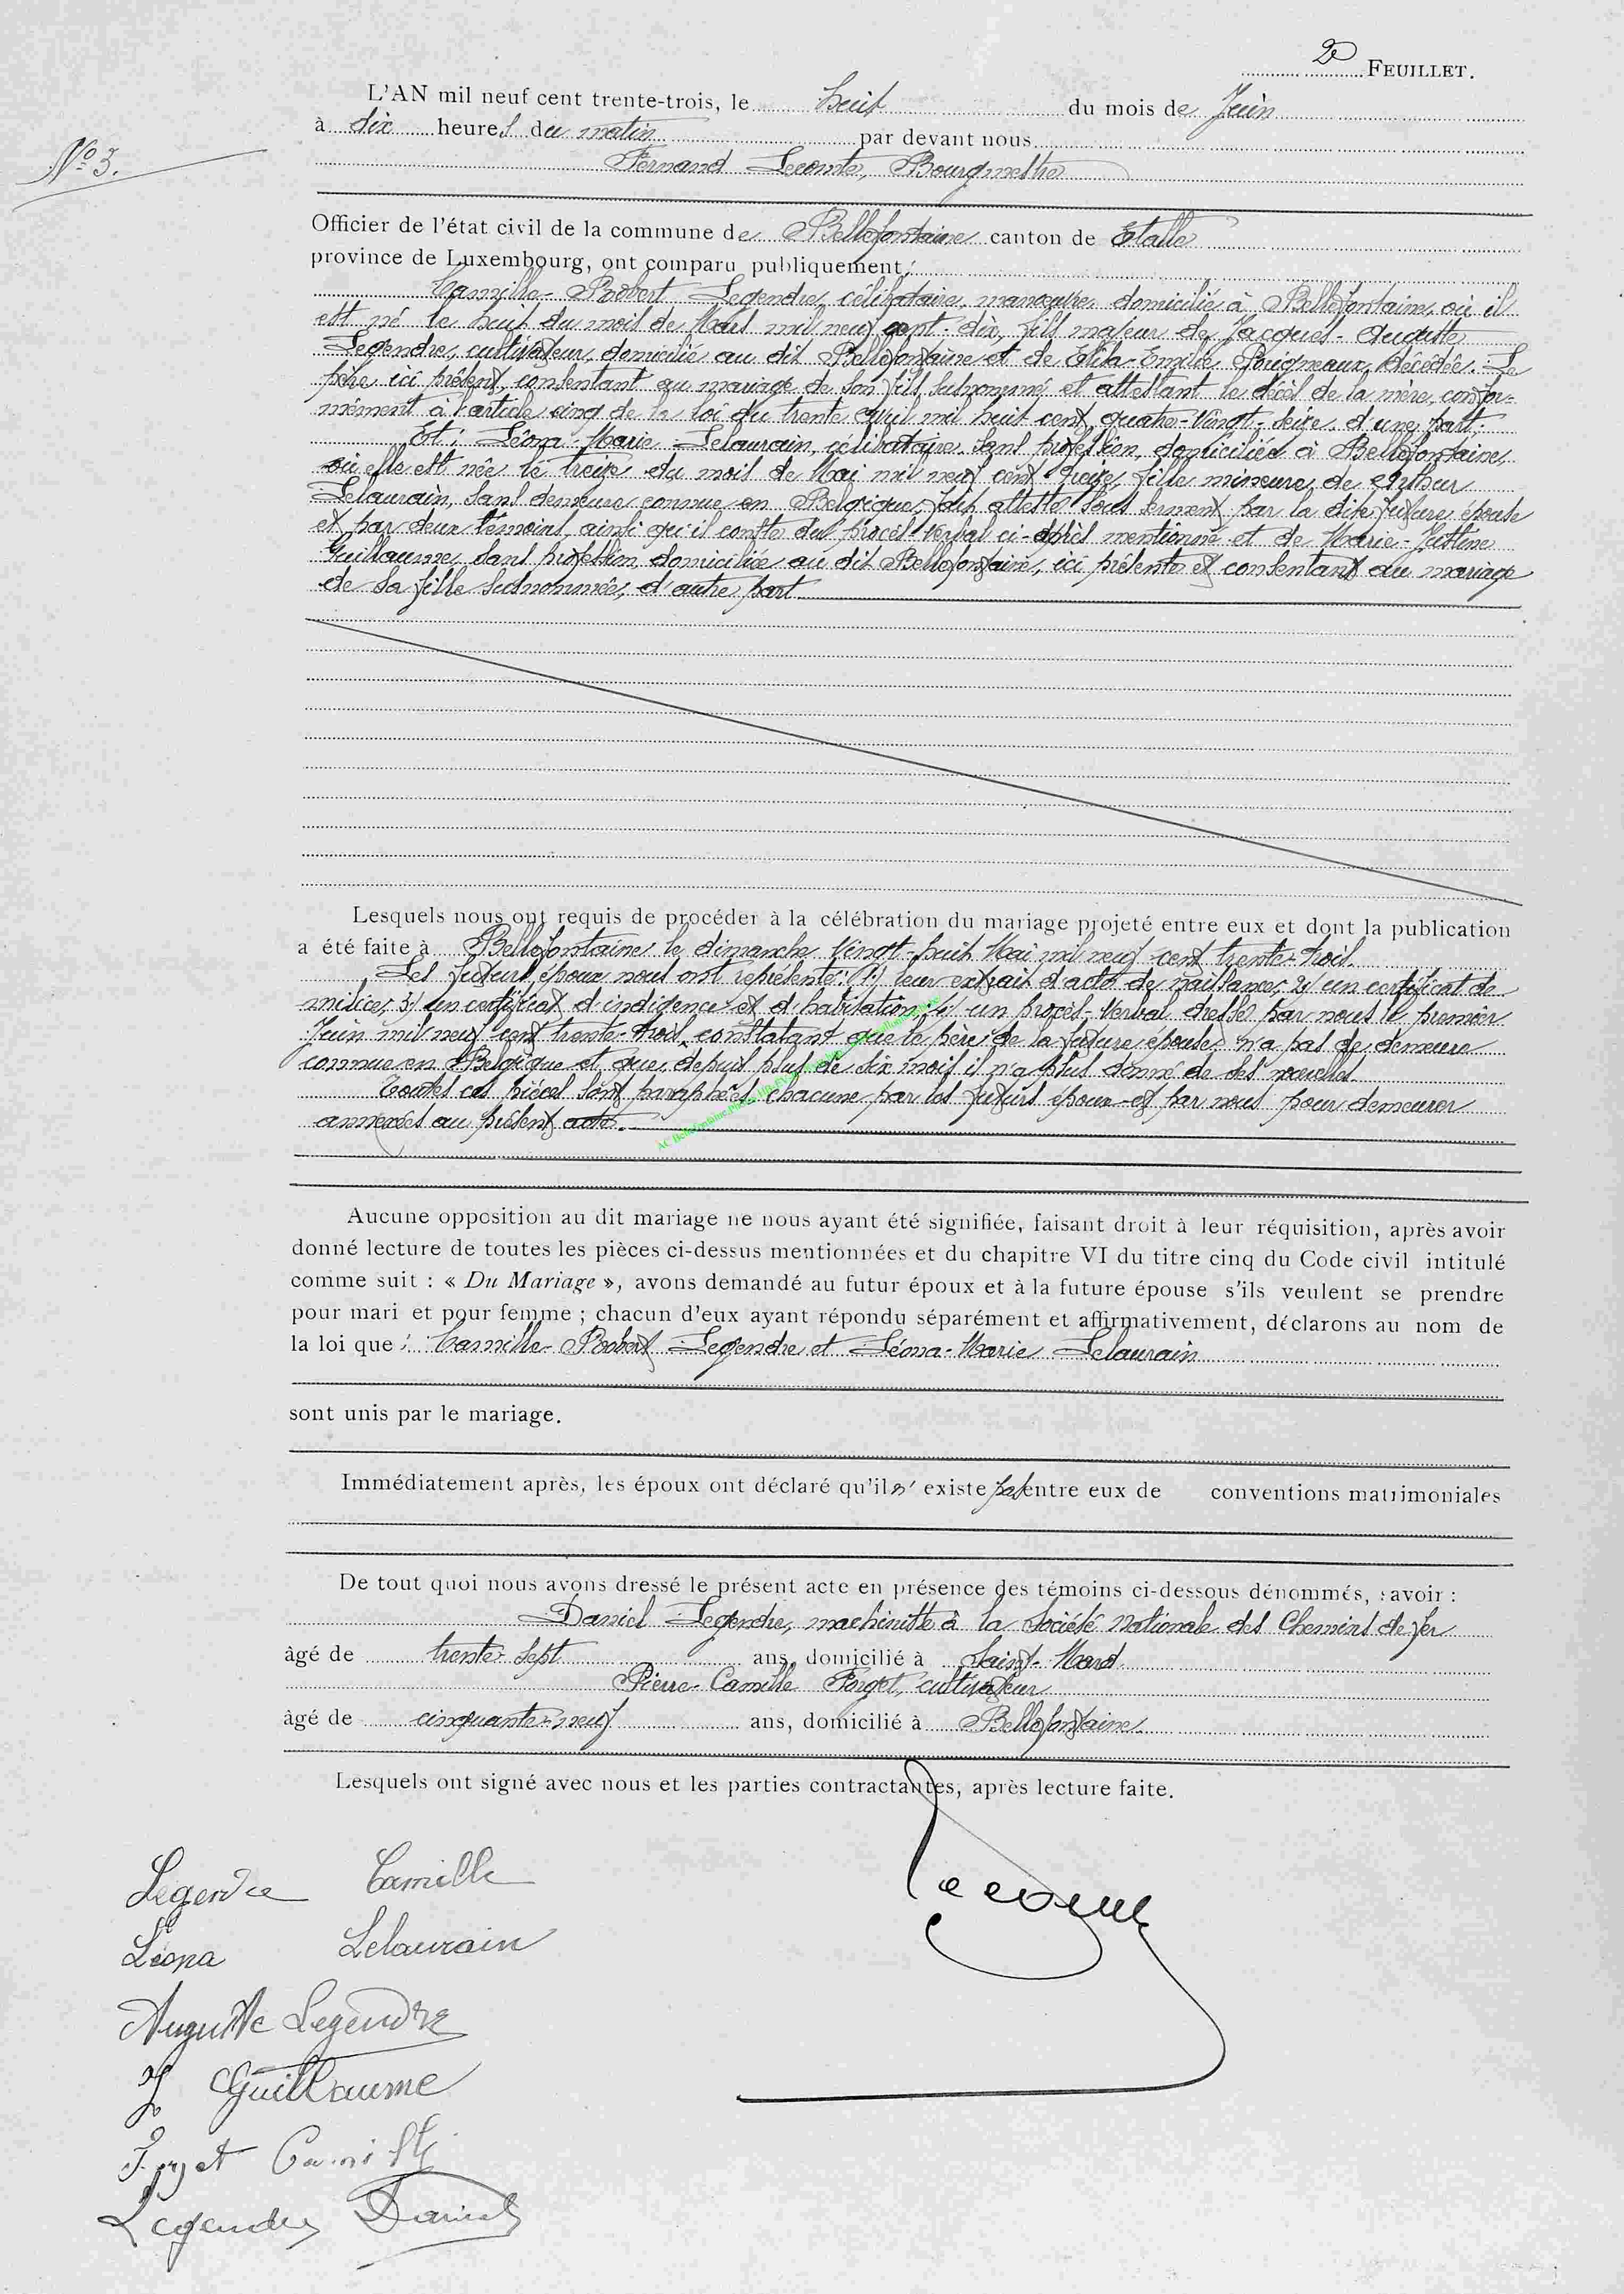 2e FEUILLET.
L'AN mil neuf cent trente-trois, le huit du mois de Juin
à dix heures du matin par devant nous
No 3.
Fernand Lecomte, Bourgmestre
Officier de l'état civil de la commune de Bellefontaine canton de Etalle
province de Luxembourg, ont comparu publiquement :
Camille-Robert Legendre, célibataire, manoeuvre, domicilié à Bellefontaine, où il
est né le huit du mois de Mars mil neuf cent dix, fils majeur de Jacques-Auguste
Legendre, cultivateur, domicilié au dit Bellefontaine et de Elisa-Emilie décédée. Le
père ici présent, consentant au mariage de son fils susnommé et attestant le décès de la mère, confor-
mément à l'article cinq de la loi du trente avril mil huit cent quatre-vingt-seize, d'une part.
Et : Léona-Marie Lelaurain, célibataire, sans profession, domiciliée à Bellefontaine,
où elle est née le treize du mois de Mai mil neuf cent treize, fille mineure de Arthur
Lelaurain, sans demeure connue en Belgique, fait attesté sous serment par la dite future épouse
et par deux témoins, ainsi qu'il conste du procès-verbal ci-après mentionné et de Marie-Justine
Guillaume, sans profession, domiciliée au dit Bellefontaine, ici présente et consentant au mariage
de sa fille susnommée, d'autre part.
Lesquels nous ont requis de procéder à la célébration du mariage projeté entre eux et dont la publication
a été faite à Bellefontaine le dimanche vingt-huit Mai mil neuf cent trente-trois.
Les futurs époux nous ont représenté : 1) leur extrait d'acte de naissance, 2) un certificat de
milice, 3) un certificat d'indigence et d'habitation, 4) un procès-verbal dressé par nous le premier
Juin mil neuf cent trente-trois, constatant que le père de la future épouse n'a pas de demeure
connue en Belgique et que depuis plus de six mois il n'a plus donné de ses nouvelles.
Toutes ces pièces sont paraphées chacune par les futurs époux et par nous pour demeurer
annexées au présent acte.
AC Bellefontaine
Aucune opposition au dit mariage ne nous ayant été signifiée, faisant droit à leur réquisition, après avoir
donné lecture de toutes les pièces ci-dessus mentionnées et du chapitre VI du titre cinq du Code civil intitulé
comme suit : « Du Mariage », avons demandé au futur époux et à la future épouse s'ils veulent se prendre
pour mari et pour femme ; chacun d'eux ayant répondu séparément et affirmativement, déclarons au nom de
la loi que : Camille-Robert Legendre et Léona-Marie Lelaurain
sont unis par le mariage.
Immédiatement après, les époux ont déclaré qu'il n'existe pas entre eux de conventions matrimoniales
De tout quoi nous avons dressé le présent acte en présence des témoins ci-dessous dénommés, savoir :
Daniel Legendre, machiniste à la Société Nationale des Chemins de fer
âgé de trente-sept ans, domicilié à Saint-Mard
Pierre-Camille Forget, cultivateur
âgé de cinquante-neuf ans, domicilié à Bellefontaine
Lesquels ont signé avec nous et les parties contractantes, après lecture faite.
Legendre Camille
Lecomte
Léona Lelaurain
Auguste Legendre
J Guillaume
Forget Camille
Legendre Daniel